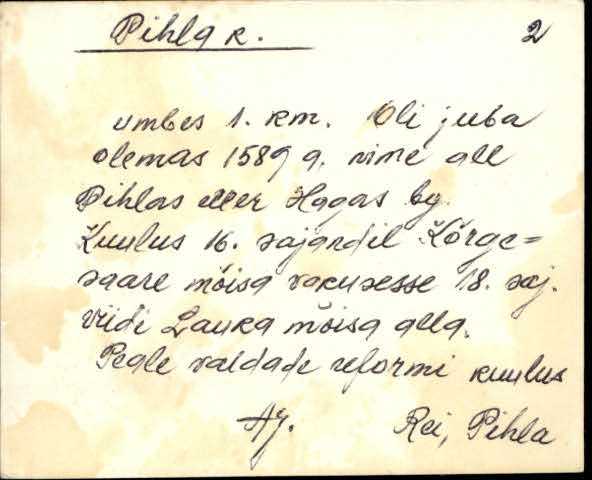 Pihla k. 2
umbes 1. km. Oli juba
olemas 1589 a. nime all
Pihlas eller Hagas by.
Kuulus 16. sajandil Kõrge=
saare mõisa vakusesse 18. saj.
viidi Lauka mõisa alla.
Peale valdade reformi kuulus
Rei, Pihla